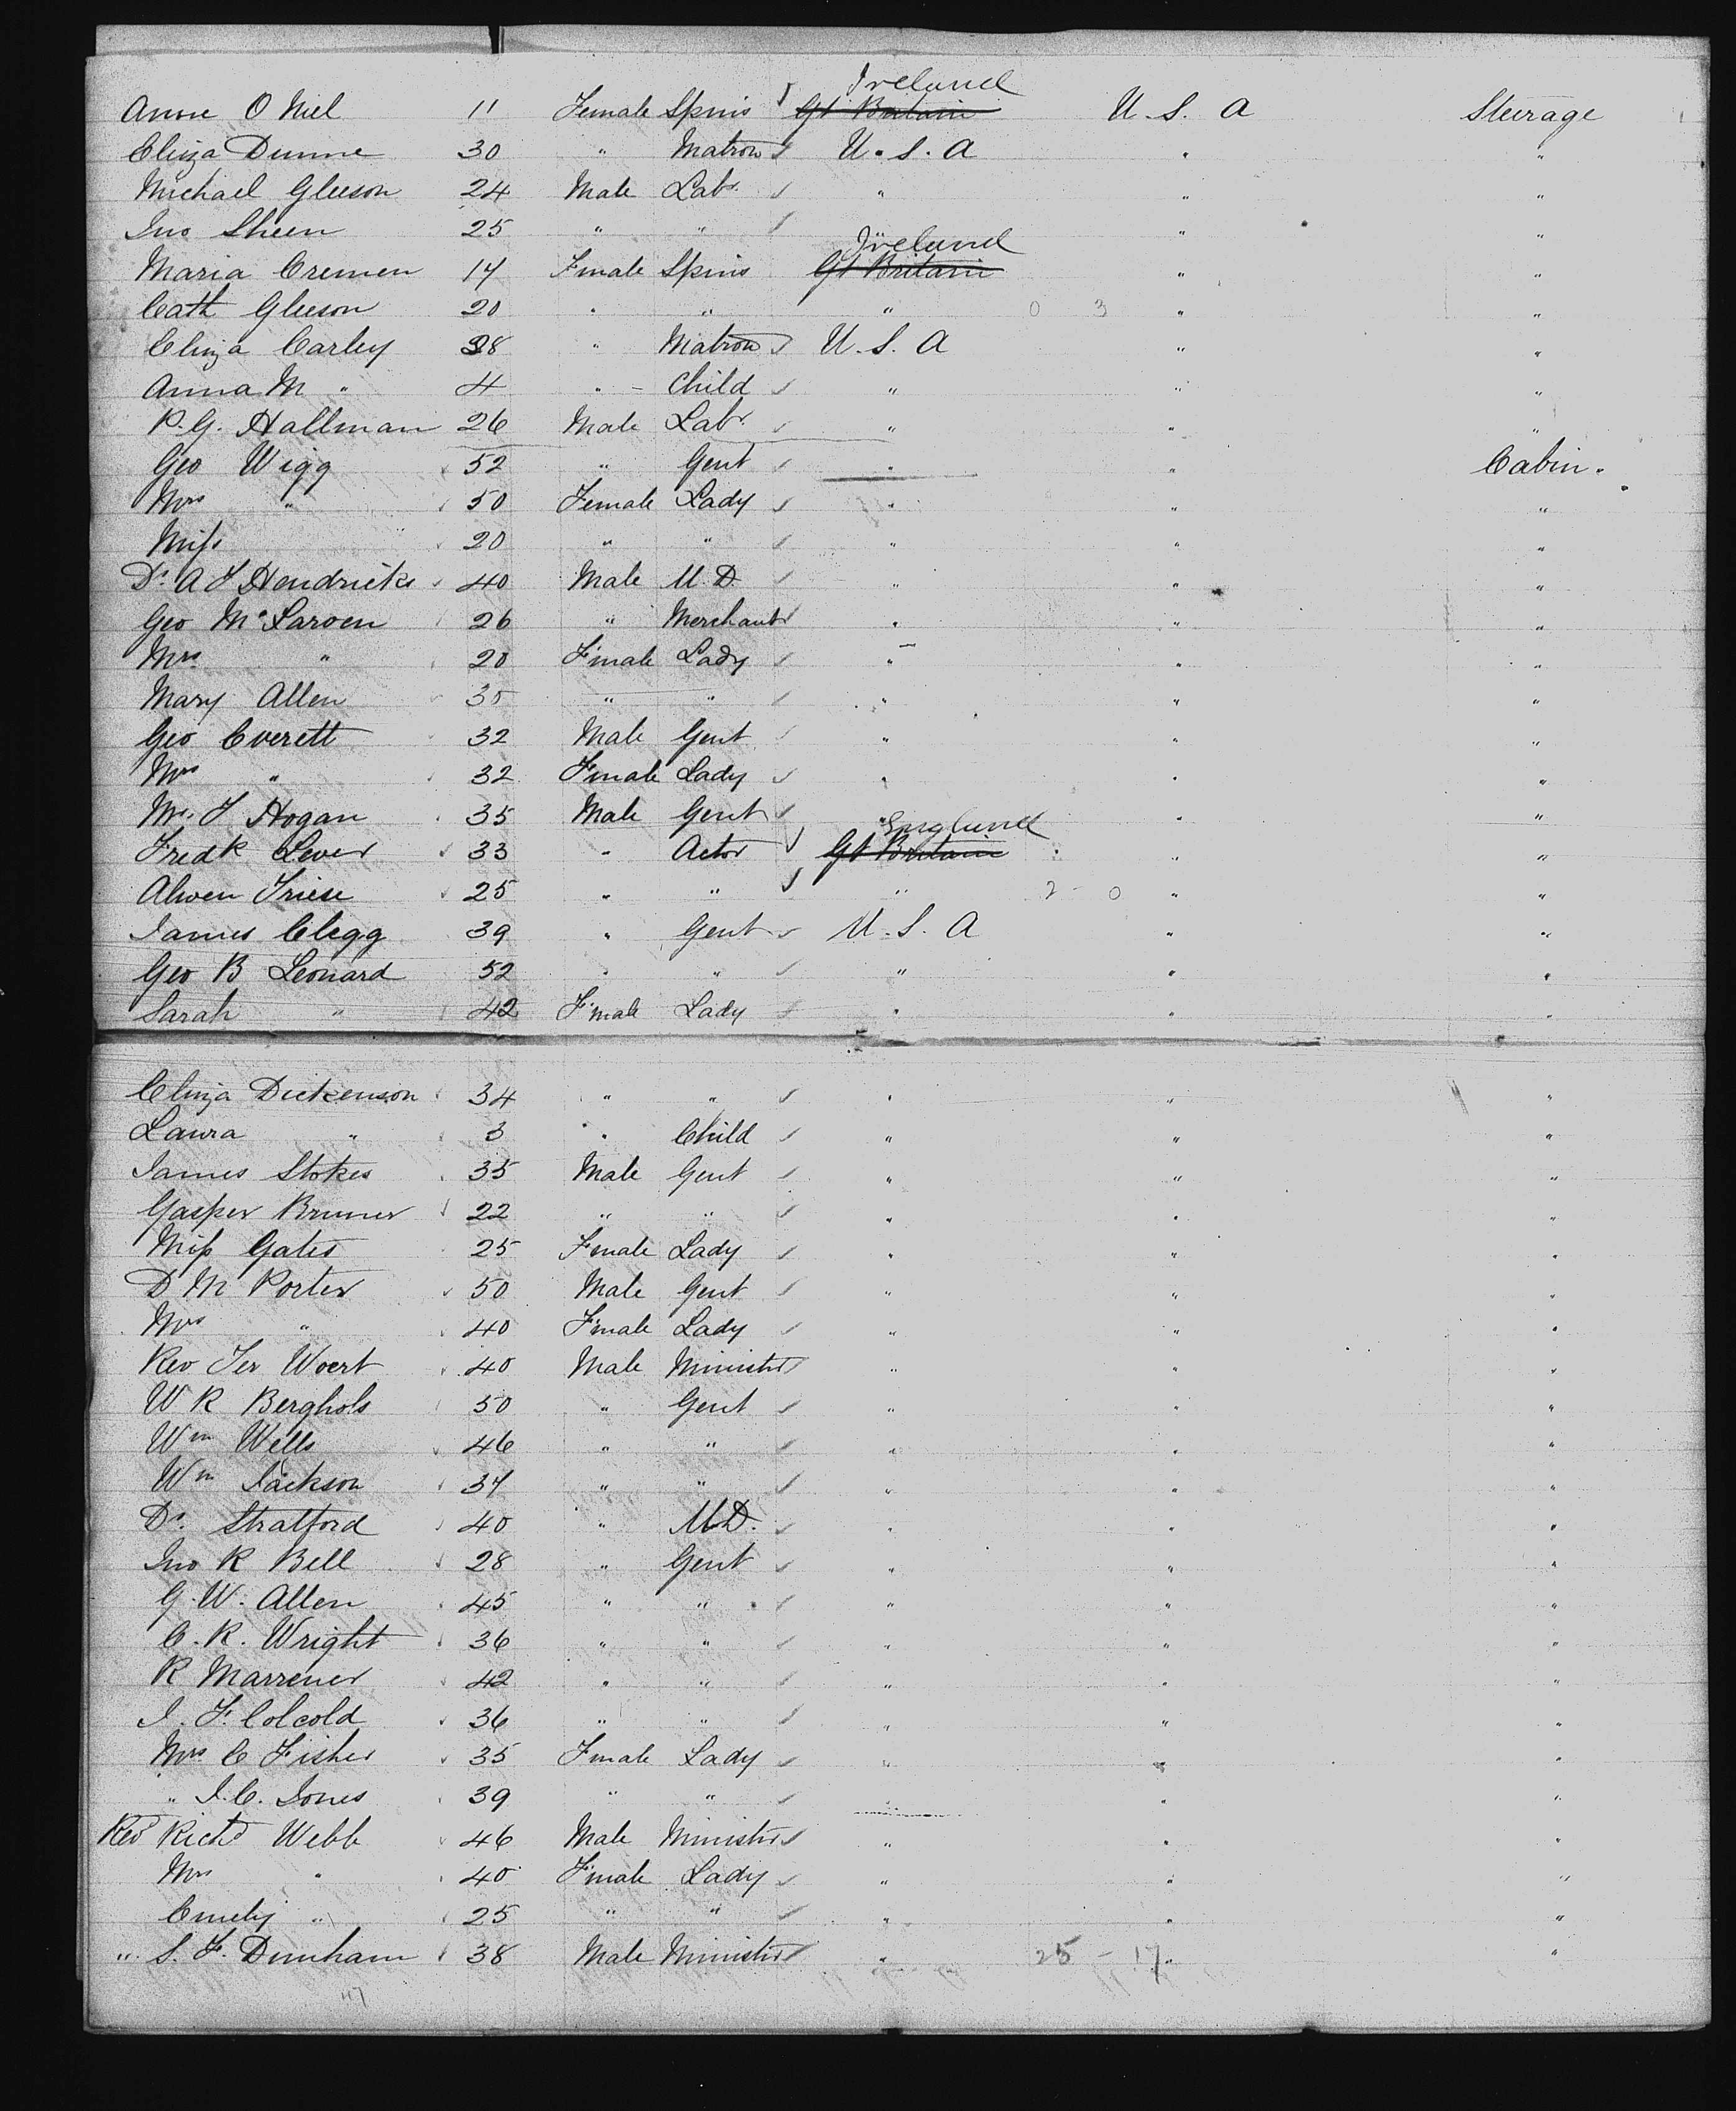 Ireland
Anne O Niel 11 Female Spins Gt Britain U. S. A Steerage
Eliza Dunne 30 " Matron U. S. A " "
Michael Gleeson 24 Male Labr. " " "
Jno Sheen 25 " " " " "
Ireland
Maria Cremen 14 Female Spins Gt Britain " "
Cath Gleeson 20 " " " 0 3 " "
Eliza Carley 38 " Matron U. S. A " "
Anna M " 4 " - Child " " "
P. G. Hallman 26 Male Labr. " " "
Geo Wigg 52 " Gent " " Cabin.
Mrs " 50 Female Lady " " "
Miss " 20 " " " " "
Dr. A J Hendricks 40 Male M. D. " " "
Geo McLaren 26 " Merchant " " "
Mrs " 20 Female Lady " " "
Mary Allen 35 " " " " "
Geo Everett 32 Male Gent " " "
Mrs " 32 Female Lady " " "
Mr. J Hogan 35 Male Gent " " "
England
Fredk Lever 33 " Actor Gt Britain " "
Alwen Friese 25 " " " 2 - 0 " "
James Clegg 39 " Gent U. S. A " "
Geo B Leonard 52 " " " " "
Sarah " 42 Female Lady " " "
Eliza Dickenson 34 " " " " "
Laura " 3 " Child " " "
James Stokes 35 Male Gent " " "
Gasper Bruner 22 " " " " "
Miss Gates 25 Female Lady " " "
D M Porter 50 Male Gent " " "
Mrs " 40 Female Lady " " "
Rev Jer Woert 40 Male Minister " " "
W R Berghols 50 " Gent " " "
Wm Wells 46 " " " " "
Wm Jackson 34 " " " " "
Dr. Stratford 40 " M.D. " " "
Jno R Bell 28 " Gent " " "
G. W. Allen 45 " " " " "
C. R. Wright 36 " " " " "
R Marrener 42 " " " " "
J. F. Colcold 36 " " " " "
Mrs C Fisher 35 Female Lady " " "
" J. C. Jones 39 " " " " "
Rev Richd Webb 46 Male Minister " " "
Mrs " 40 Female Lady " " "
Emely " 25 " " " " "
" S. F. Dunham 38 Male Minister " 25 - 17 " "
47